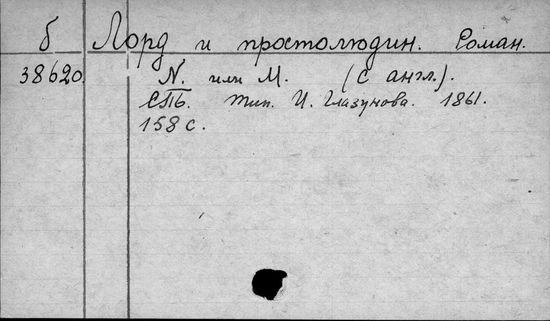 б Лорд и простолюдин. Роман.
38620 N. или М. (с англ.).
СПБ. тип. И. Глазунова. 1861.
158 с.